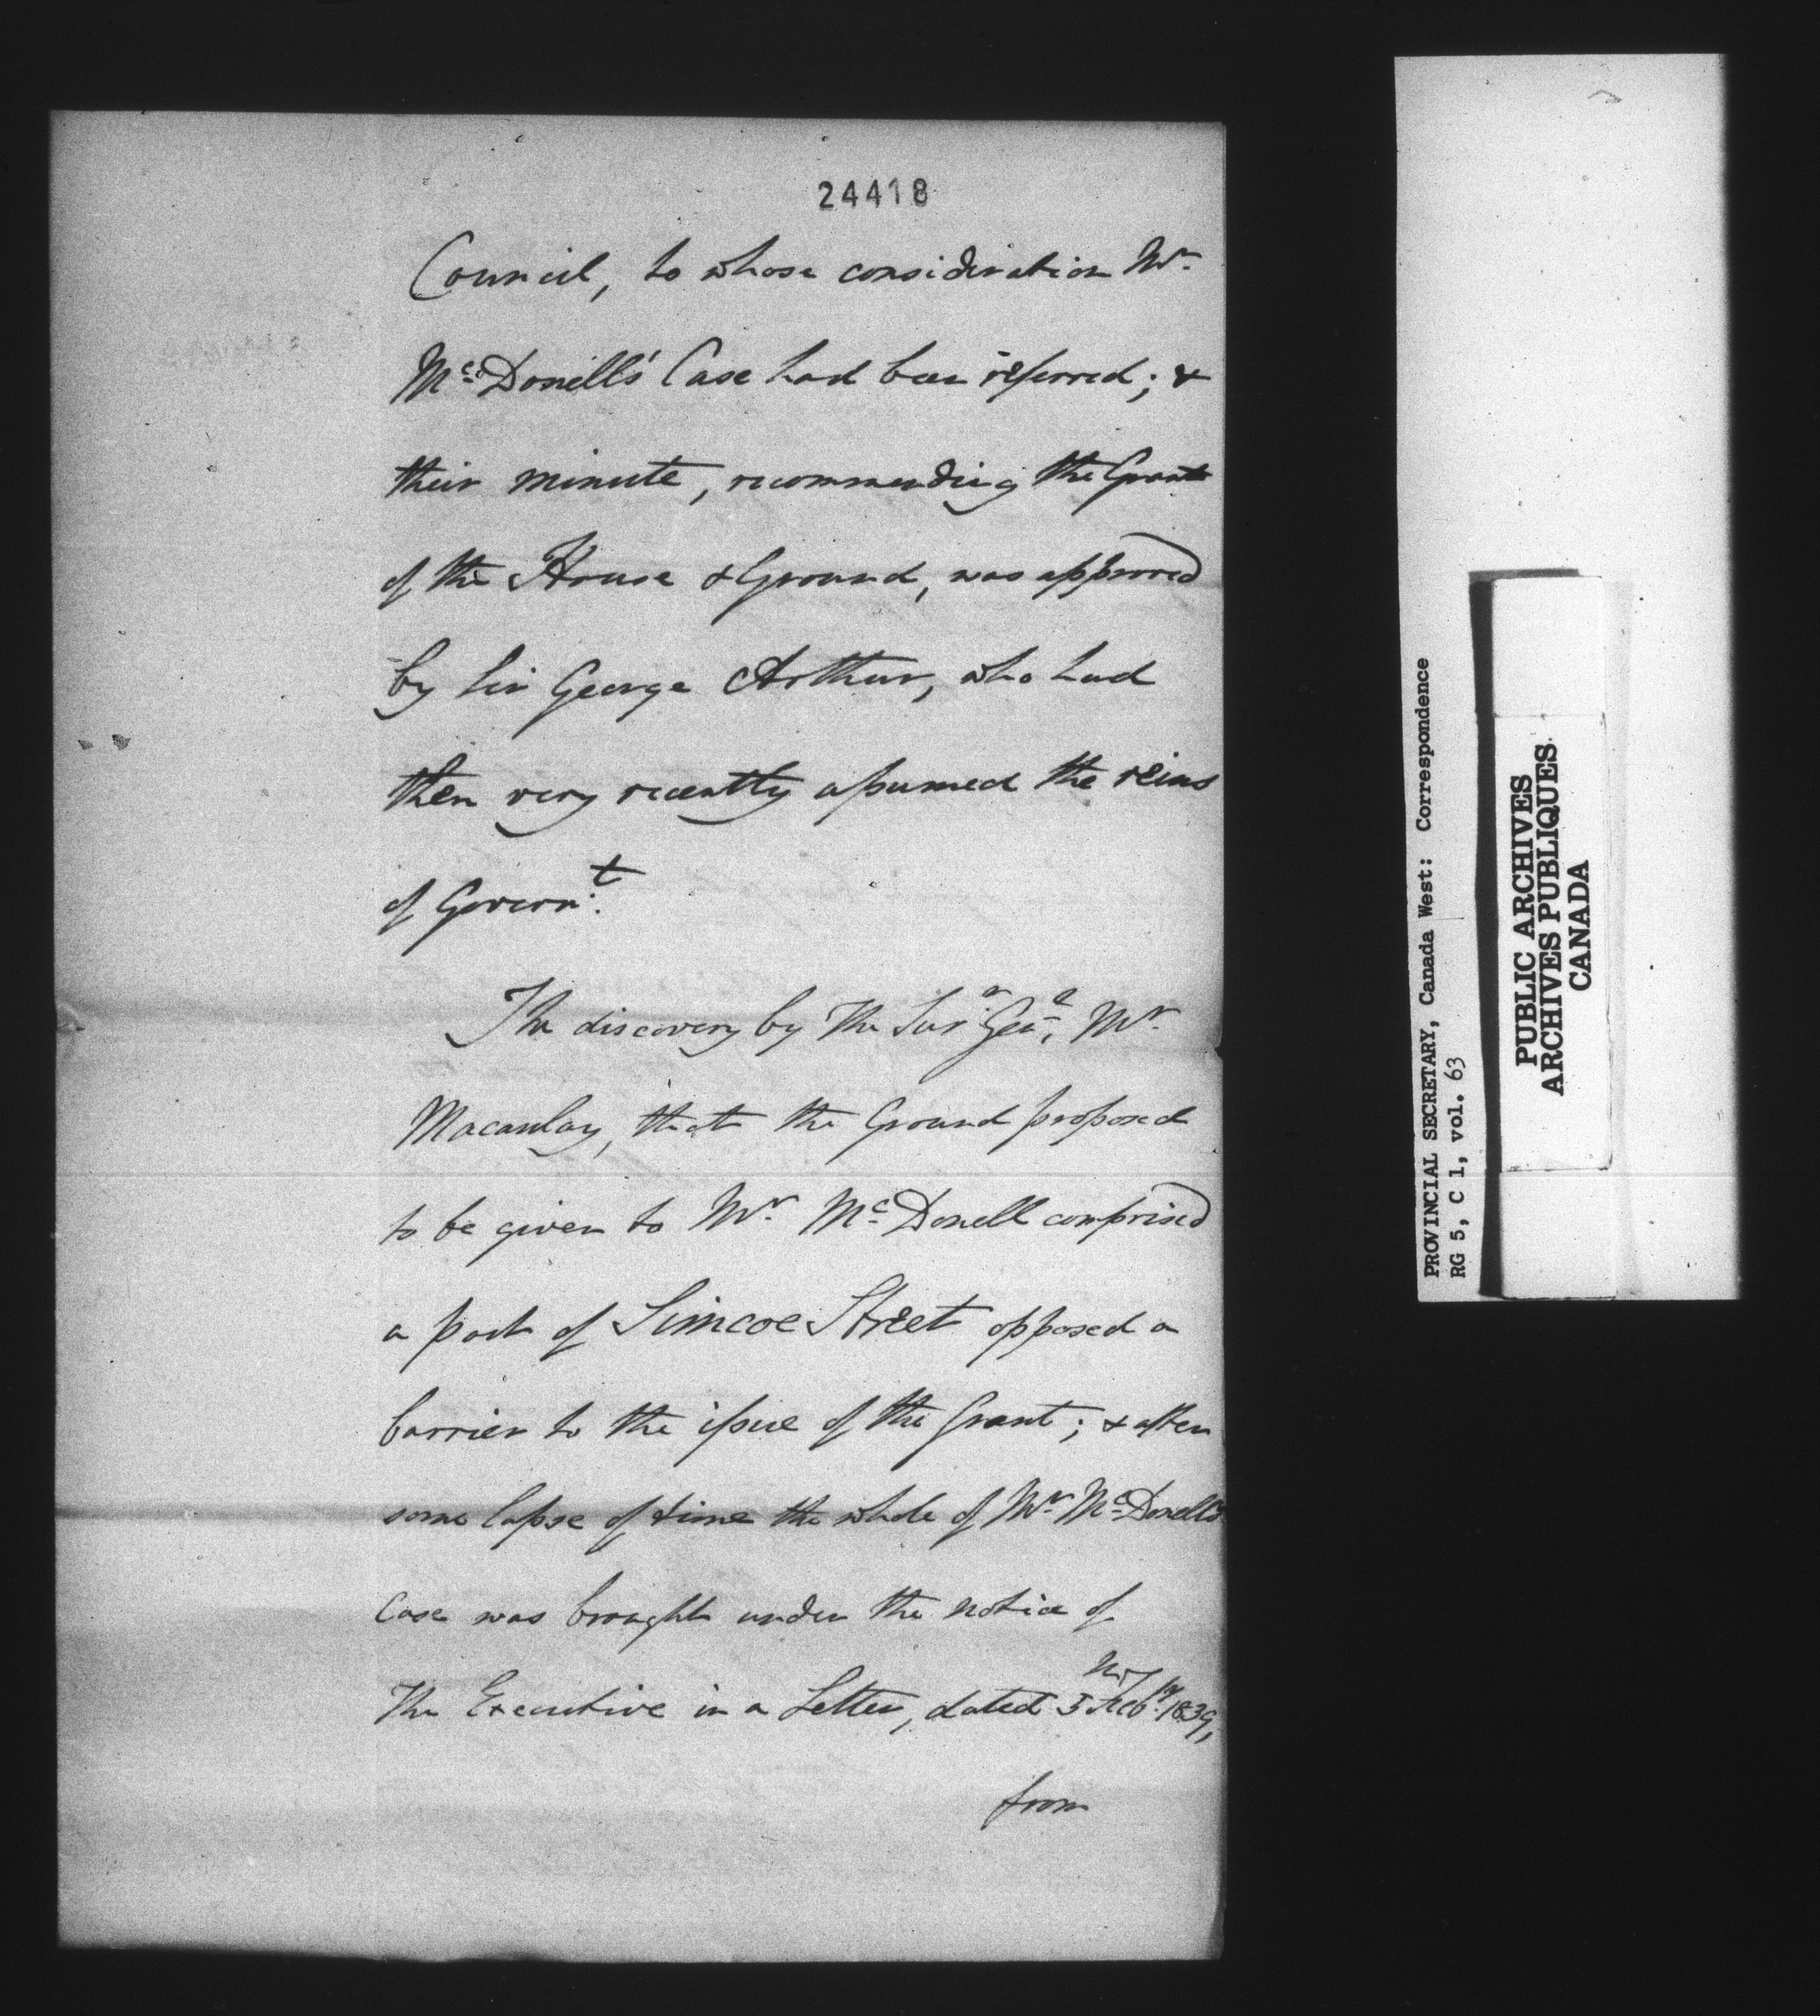 24418
Council, to whose consideration Mr.
McDonell's Case had been referred; &
their minute, recommending the Grant
of the House & Ground, was approved
by Sir George Arthur, who had
then very recently assumed the reins
of Governt.
The discovery by The Surr Genl, Mr.
Macaulay, that the Ground proposed
to be given to Mr. McDonell comprised
a part of Simcoe Street opposed a
barrier to the issue of the Grant; & after
some lapse of time the whole of Mr. McDonell's
Case was brought under the notice of
The Executive in a Letter, dated 5 Feby. 1839,
from
PROVINCIAL SECRETARY, Canada West: Correspondence
RG 5, C 1, vol. 63
PUBLIC ARCHIVES
ARCHIVES PUBLIQUES
CANADA